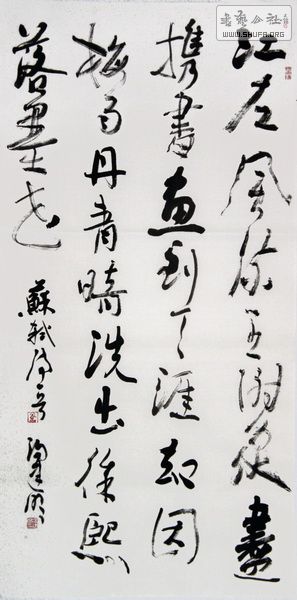 書藝公社
WWW.SHUFA.ORG
江左風流王謝家盡
携書畫到天涯却因
梅雨丹青暗洗出徐熙
落墨花
蘇軾詩